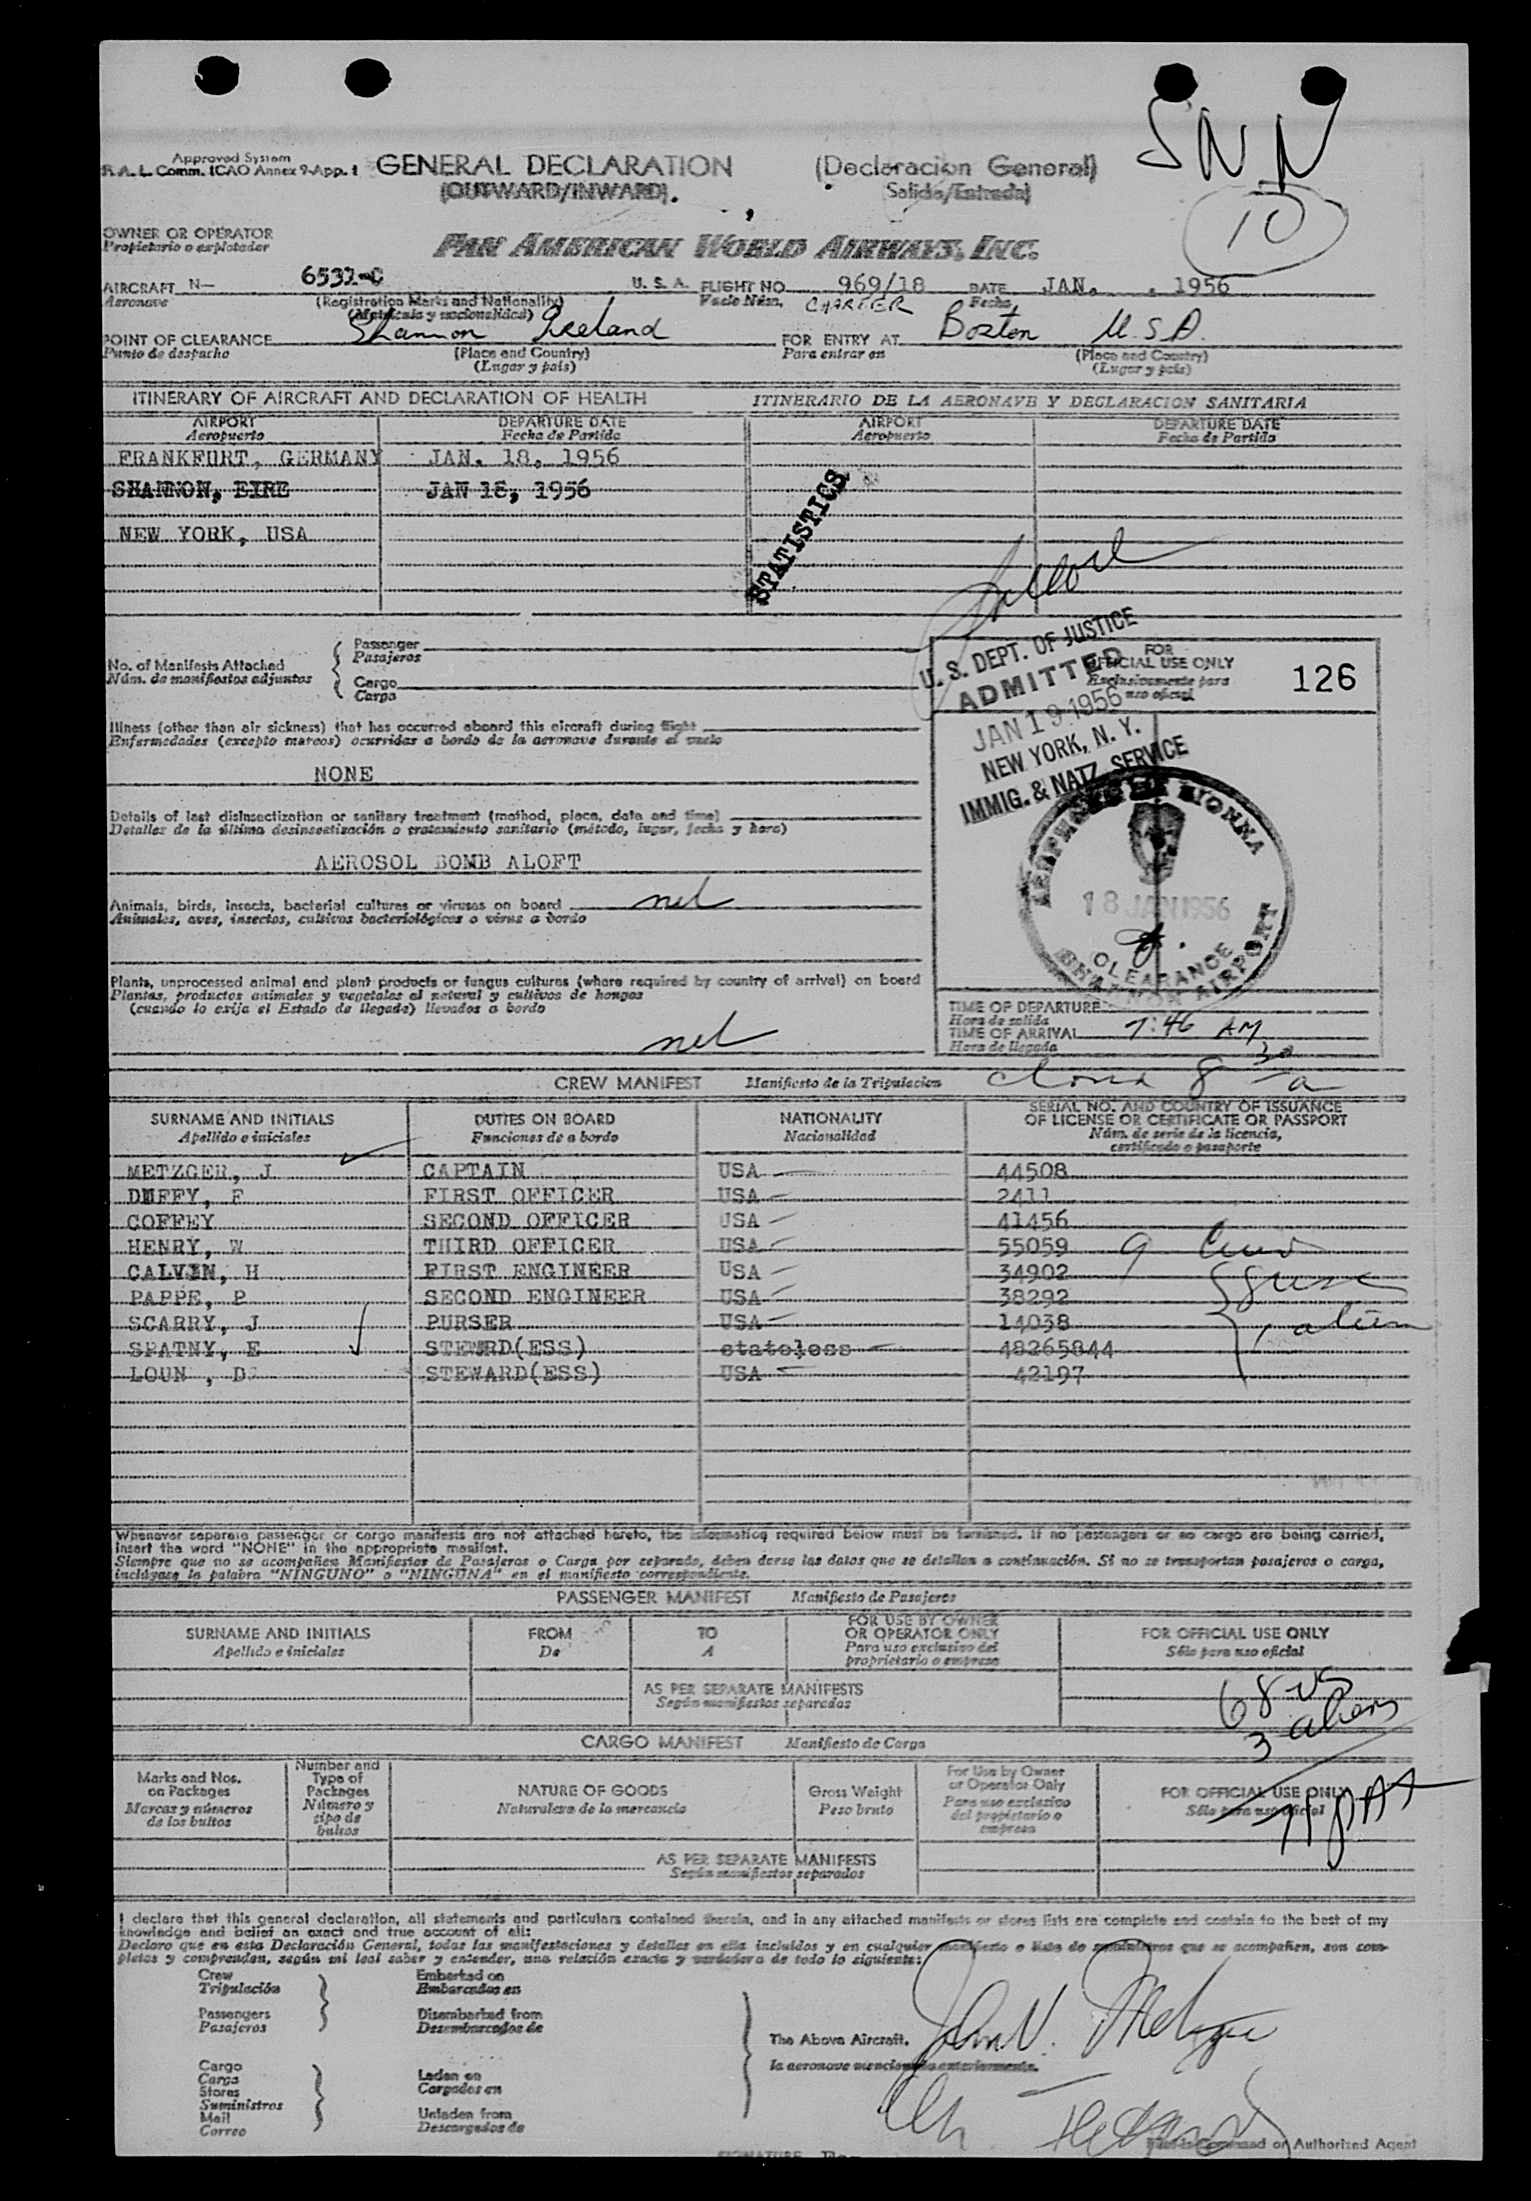 SNN
10
Approved System
R.A.L. Comm. ICAO Annex 9-App. 1
GENERAL DECLARATION (Declaracion General)
(OUTWARD/INWARD). Salida/Entrada)
OWNER OR OPERATOR
Propietario o explotador
PAN AMERICAN WORLD AIRWAYS, INC.
AIRCRAFT N- 6532-C U. S. A. FLIGHT NO. 969/18 DATE JAN. , 1956
Aeronave (Registration Marks and Nationality) Vuelo Núm. CHARTER Fecha
(Matricula y nacionalidad)
POINT OF CLEARANCE Shannon Ireland FOR ENTRY AT Boston U.S.A.
Punto de despacho (Place and Country) Para entrar en (Place and Country)
(Lugar y pais) (Lugar y pais)
ITINERARY OF AIRCRAFT AND DECLARATION OF HEALTH ITINERARIO DE LA AERONAVE Y DECLARACION SANITARIA
AIRPORT DEPARTURE DATE AIRPORT DEPARTURE DATE
Aeropuerto Fecha de Partida Aeropuerto Fecha de Partida
FRANKFURT, GERMANY JAN. 18, 1956
SHANNON, EIRE JAN 18, 1956
NEW YORK, USA
STATISTICS
No. of Manifests Attached
Núm. de manifiestos adjuntos
Passenger
Pasajeros
Cargo
Carga
U. S. DEPT. OF JUSTICE
ADMITTED
JAN 19 1956
NEW YORK, N. Y.
IMMIG. & NATZ. SERVICE
FOR
OFFICIAL USE ONLY
Exclusivamente para
uso oficial
126
Illness (other than air sickness) that has occurred aboard this aircraft during flight
Enfermedades (excepto mareos) ocurridas a bordo de la aeronave durante el vuelo
NONE
Details of last disinsectization or sanitary treatment (method, place, date and time)
Detalles de la última desinsectización o tratamiento sanitario (método, lugar, fecha y hora)
AEROSOL BOMB ALOFT
Animals, birds, insects, bacterial cultures or viruses on board nil
Animales, aves, insectos, cultivos bacteriológicos o virus a bordo
18 JAN 1956
CLEARANCE
SHANNON AIRPORT
Plants, unprocessed animal and plant products or fungus cultures (where required by country of arrival) on board
Plantas, productos animales y vegetales al natural y cultivos de hongos
(cuando lo exija el Estado de llegada) llevados a bordo
nil
TIME OF DEPARTURE
Hora de salida
TIME OF ARRIVAL 7:46 AM
Hora de llegada
CREW MANIFEST Manifiesto de la Tripulacion 8 30 a
SURNAME AND INITIALS DUTIES ON BOARD NATIONALITY SERIAL NO. AND COUNTRY OF ISSUANCE
OF LICENSE OR CERTIFICATE OR PASSPORT
Apellido e iniciales Funciones de a bordo Nacionalidad Núm. de serie de la licencia,
certificado o pasaporte
METZGER, J CAPTAIN USA 44508
DUFFY, F FIRST OFFICER USA 2411
COFFEY SECOND OFFICER USA 41456
HENRY, W THIRD OFFICER USA 55059 9 Crew
CALVIN, H FIRST ENGINEER USA 34902
PAPPE, P SECOND ENGINEER USA 38292
SCARRY, J PURSER USA 14038 1 alien
SPATNY, E STEWRD(ESS) stateless 48265844
LOUN , D STEWARD(ESS) USA 42197
Whenever separate passenger or cargo manifests are not attached hereto, the information required below must be furnished. If no passengers or no cargo are being carried,
insert the word "NONE" in the appropriate manifest.
Siempre que no se acompañen Manifiestos de Pasajeros o Carga por separado, deben darse los datos que se detallan a continuación. Si no se transportan pasajeros o carga,
inclúyase la palabra "NINGUNO" o "NINGUNA" en el manifiesto correspondiente.
PASSENGER MANIFEST Manifiesto de Pasajeros
SURNAME AND INITIALS FROM TO FOR USE BY OWNER
OR OPERATOR ONLY FOR OFFICIAL USE ONLY
Apellido e iniciales De A Para uso exclusivo del
propietario o empresa Sólo para uso oficial
AS PER SEPARATE MANIFESTS
Según manifiestos separados
68 US
3 aliens
CARGO MANIFEST Manifiesto de Carga
Marks and Nos.
on Packages
Marcas y números
de los bultos
Number and
Type of
Packages
Número y
tipo de
bultos
NATURE OF GOODS
Naturaleza de la mercancia
Gross Weight
Peso bruto
For Use by Owner
or Operator Only
Para uso exclusivo
del propietario o
empresa
FOR OFFICIAL USE ONLY
Sólo para uso oficial
71 PAX
AS PER SEPARATE MANIFESTS
Según manifiestos separados
I declare that this general declaration, all statements and particulars contained therein, and in any attached manifests or stores lists are complete and contain to the best of my
knowledge and belief an exact and true account of all:
Declaro que en esta Declaración General, todas las manifestaciones y detalles en ella incluidos y en cualquier manifiesto o lista de suministros que se acompañen, son com-
pletos y comprenden, según mi leal saber y entender, una relación exacta y verdadera de todo lo siguiente:
Crew Embarked on
Tripulación Embarcados en
Passengers Disembarked from
Pasajeros Desembarcados de
The Above Aircraft.
la aeronave mencionada anteriormente.
John V. Metzger
Cargo Laden on
Carga Cargados en
Stores
Suministros
Mail Unladen from
Correo Descargados de
Pilot in Command or Authorized Agent
SIGNATURE